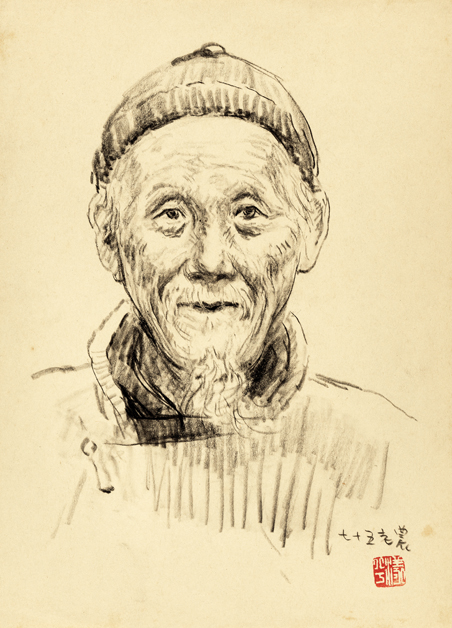 七十五老農